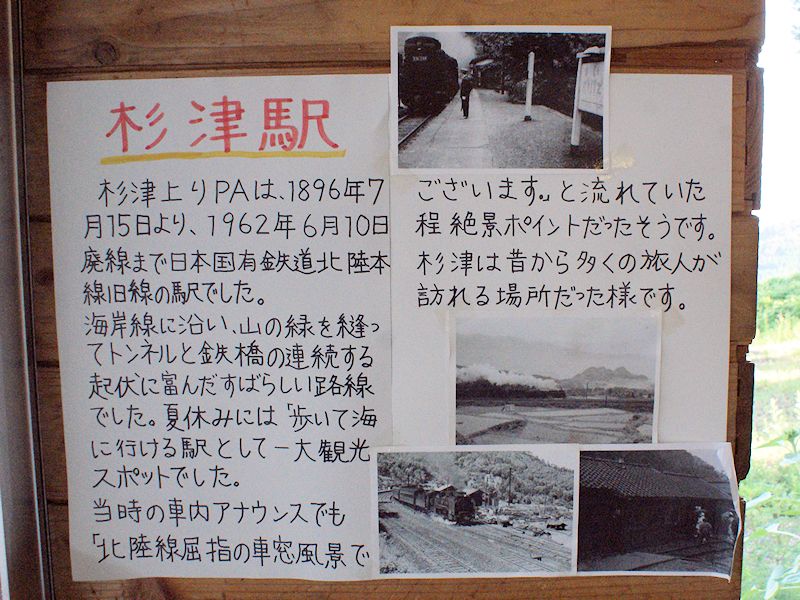 杉津駅
杉津上りPAは、1896年7
月15日より、1962年6月10日
廃線まで日本国有鉄道北陸本
線旧線の駅でした。
海岸線に沿い、山の緑を縫っ
てトンネルと鉄橋の連続する
起伏に富んだすばらしい路線
でした。夏休みには「歩いて海
に行ける駅として一大観光
スポットでした。
当時の車内アナウンスでも
「北陸線屈指の車窓風景で
ございます。」と流れていた
程絶景ポイントだったそうです。
杉津は昔から多くの旅人が
訪れる場所だった様です。